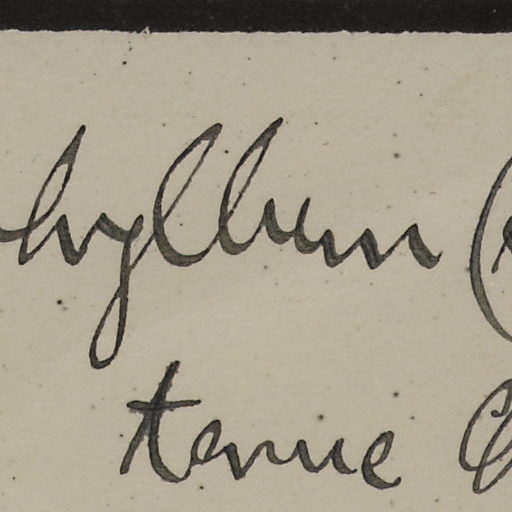 hyllum (
tenue C